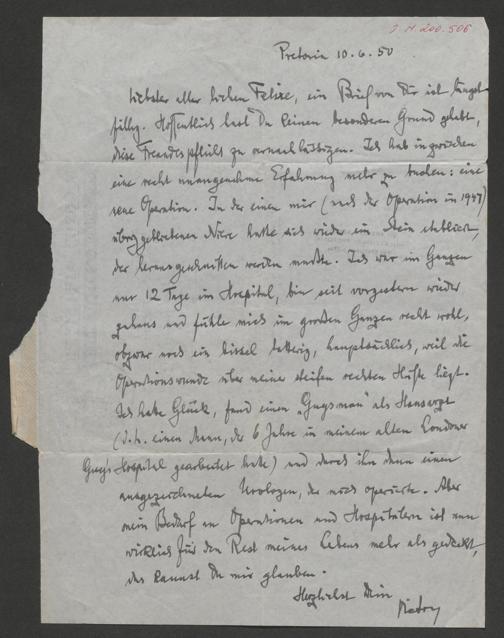 J. N. 200.506
Pretoria 10.6.50
Liebster aller lieben Felixe, ein Brief von Dir ist längst
fällig. Hoffentlich hast Du keinen besonderen Grund gehabt,
diese Freundespflicht zu vernachlässigen. Ich hab inzwischen
eine recht unangenehme Erfahrung mehr zu buchen: eine
neue Operation. In der einen mir (nach der Operation in 1947)
übriggebliebenen Niere hatte sich wieder ein Stein etabliert,
der herausgeschnitten werden musste. Ich war im Ganzen
nur 12 Tage im Hospital, bin seit vorgestern wieder
zuhaus und fühle mich im großen Ganzen recht wohl,
obzwar noch ein bissel tatterig, hauptsächlich, weil die
Operationswunde über meiner steifen rechten Hüfte liegt.
Ich hatte Glück, fand einen „Guysman" als Hausarzt
(d.h. einen Mann, der 6 Jahre in meinem alten Londoner
Guy's Hospital gearbeitet hatte) und durch ihn dann einen
ausgezeichneten Urologen, der mich operierte. Aber
mein Bedarf an Operationen und Hospitälern ist nun
wirklich für den Rest meines Lebens mehr als gedeckt,
das kannst Du mir glauben.
Herzlichst Dein
Viktor